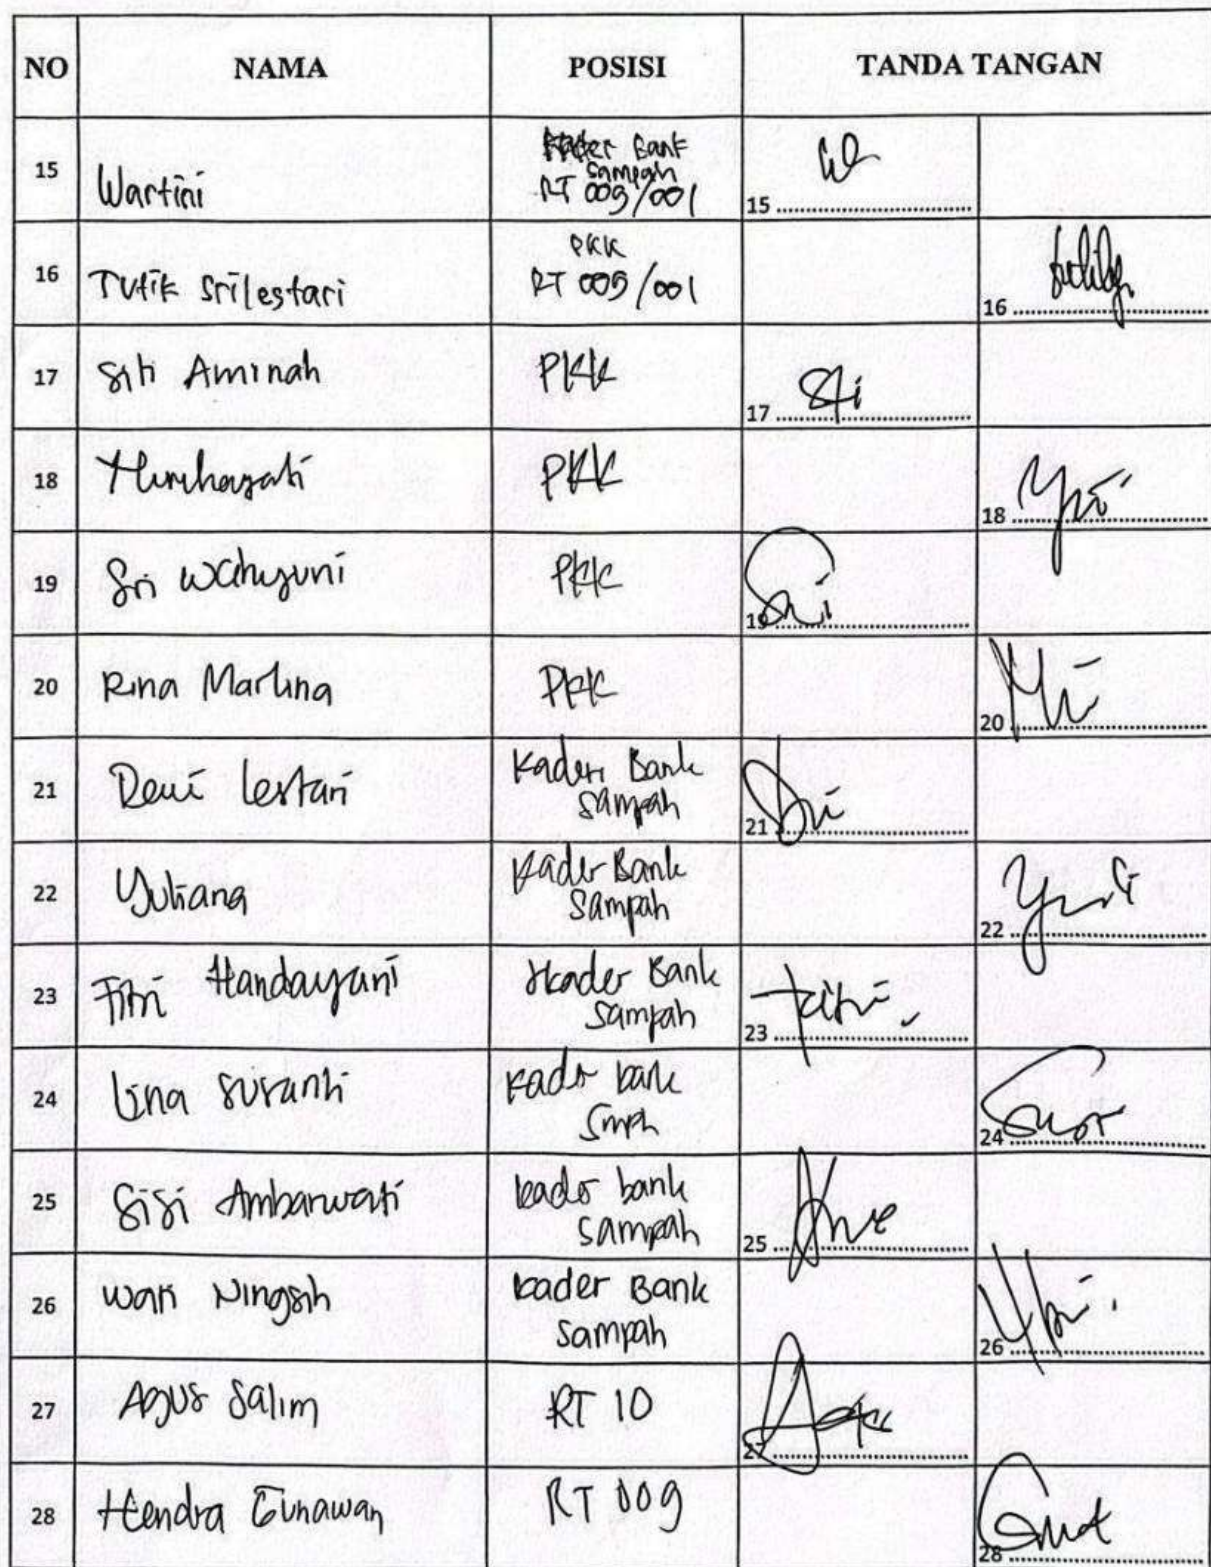 NO NAMA POSISI TANDA TANGAN
15 Wartini Kader Bank
Sampah
RT 009/001 15
16 Tutik Srilestari PKK
RT 009/001 16
17 Siti Aminah PKK 17
18 Nurhayati PKK 18
19 Sri Wahyuni PKK 19
20 Rina Marlina PKK 20
21 Dewi Lestari Kader Bank
Sampah 21
22 Yuliana Kader Bank
Sampah 22
23 Fitri Handayani Kader Bank
Sampah 23
24 Lina Susanti Kader bank
Smph 24
25 Sisi Ambarwati kader bank
sampah 25
26 Wati Ningsih kader Bank
sampah 26
27 Agus Salim RT 10 27
28 Hendra Gunawan RT 009 28